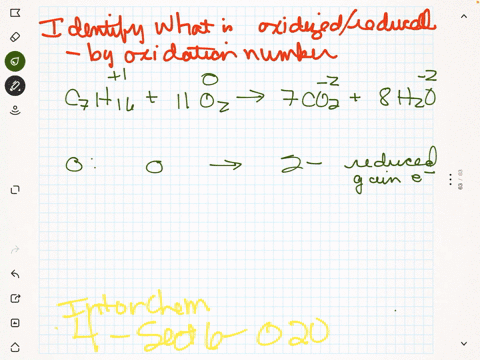 Identify what is oxidized/reduced
- by oxidation number
+1 0 -2 -2
C7H16 + 11 O2 → 7CO2 + 8H2O
O: 0 → 2- reduced
gain e-
63 / 63
IntorChem
4 - Sect6 - 020